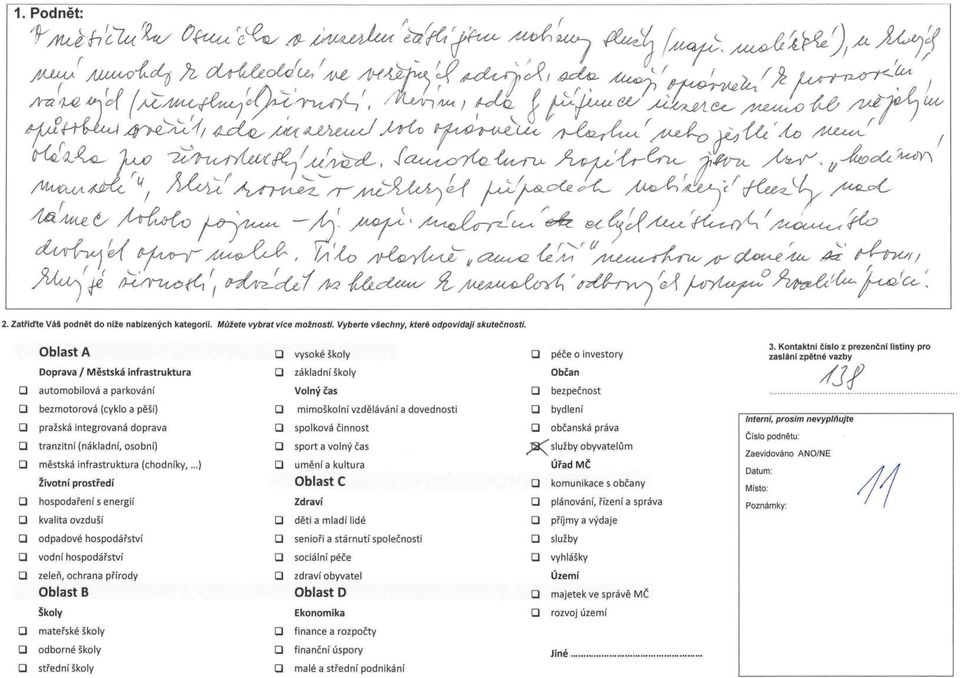 1. Podnět:
V měsíčníku Osmička v inzertní části jsou nabízeny služby (např. malířské), u kterých
není mnohdy k dohledání ve veřejných zdrojích, zda mají oprávnění k provozování
vázaných (řemeslných) živností. Nevím, zda při příjmu inzerce nemohl nějakým
způsobem ověřit, zda inzerent toto oprávnění vlastní nebo jestli to není
otázka pro živnostenský úřad. Samostatnou kapitolou jsou tzv. "hodinoví
manželé", kteří rovněž v některých případech nabízejí služby nad
rámec tohoto pojmu – tj. např. malování celých místností namísto
drobných oprav maleb. Tito vlastně "amatéři" nemohou v daném oboru,
který je živností, odvádět vzhledem k neznalosti odborných postupů kvalitní práci.
2. Zatřiďte Váš podnět do níže nabízených kategorií. Můžete vybrat více možností. Vyberte všechny, které odpovídají skutečnosti.
Oblast A
Doprava / Městská infrastruktura
automobilová a parkování
bezmotorová (cyklo a pěší)
pražská integrovaná doprava
tranzitní (nákladní, osobní)
městská infrastruktura (chodníky, ...)
Životní prostředí
hospodaření s energií
kvalita ovzduší
odpadové hospodářství
vodní hospodářství
zeleň, ochrana přírody
Oblast B
Školy
mateřské školy
odborné školy
střední školy
vysoké školy
základní školy
Volný čas
mimoškolní vzdělávání a dovednosti
spolková činnost
sport a volný čas
umění a kultura
Oblast C
Zdraví
děti a mladí lidé
senioři a stárnutí společnosti
sociální péče
zdraví obyvatel
Oblast D
Ekonomika
finance a rozpočty
finanční úspory
malé a střední podnikání
péče o investory
Občan
bezpečnost
bydlení
občanská práva
služby obyvatelům
Úřad MČ
komunikace s občany
plánování, řízení a správa
příjmy a výdaje
služby
vyhlášky
Území
majetek ve správě MČ
rozvoj území
Jiné ................................................
3. Kontaktní číslo z prezenční listiny pro
zaslání zpětné vazby
138
Interní, prosím nevyplňujte
Číslo podnětu:
Zaevidováno ANO/NE
Datum:
Místo:
Poznámky:
11